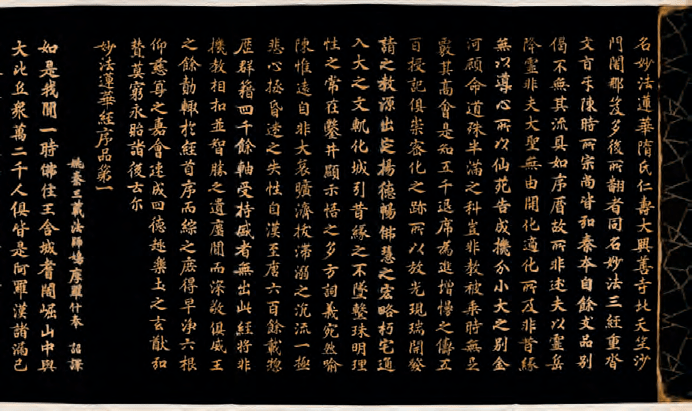 名妙法蓮華隋氏仁壽大興善寺北天竺沙
門闍那笈多後所翻者同名妙法三經重沓
文旨互陳時所宗尚皆弘秦本自餘支品別
偈不無其流具如序曆故所非述夫以靈岳
降靈非夫大聖無由開化適化所及非昔緣
無以導心所以仙苑告成機分小大之別金
河顧命道殊半滿之科豈非教被乘時無足
覈其高會是知五千退席為進增慢之儔五
百授記俱崇密化之跡所以放光現瑞開發
請之教源出定揚德暢佛慧之宏略朽宅通
入大之文軌化城引昔緣之不墜繫珠明理
性之常在鑿井顯示悟之多方詞義宛然喻
陳惟遠自非大哀曠濟拔滯溺之沉流一極
悲心拯昏迷之失性自漢至唐六百餘載揔
歷群籍四千餘軸受持盛者無出此經將非
機教相扣並智勝之遺塵聞而深敬俱威王
之餘勣輒於經首序而綜之庶得早淨六根
仰慈尊之嘉會速成四德趣樂土之玄猷弘
贊莫窮永貽諸後云尔
妙法蓮華經序品第一
姚秦三藏法師鳩摩羅什奉 詔譯
如是我聞一時佛住王舍城耆闍崛山中與
大比丘眾萬二千人俱皆是阿羅漢諸漏已